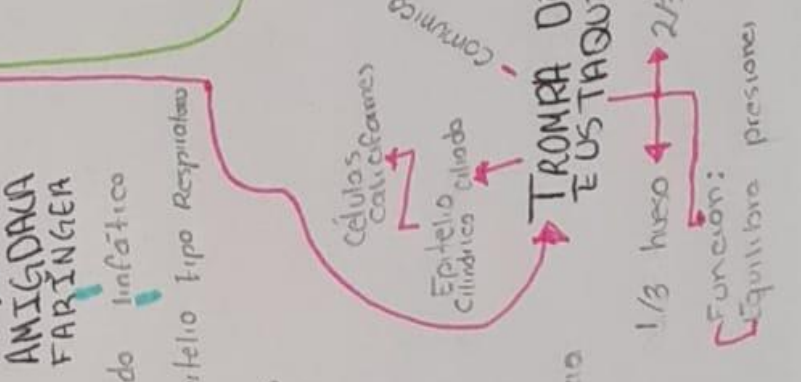 AMÍGDALA
FARÍNGEA
do linfático
itelio tipo Respiratorio
Células
caliciformes
Epitelio
Cilíndrico ciliado
Comunica
TROMPA D
EUSTAQU
1/3 hueso
2/3
Función:
Equilibra presiones